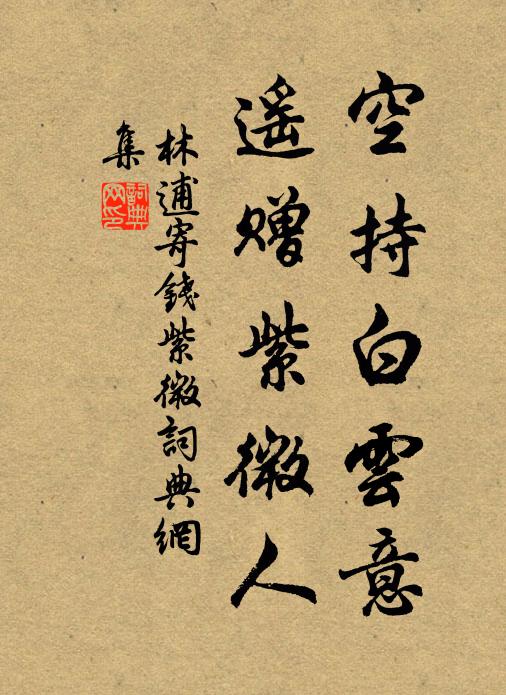 空持白雲意
遥贈紫微人
林逋寄錢紫微詞典網
集
詞典网印